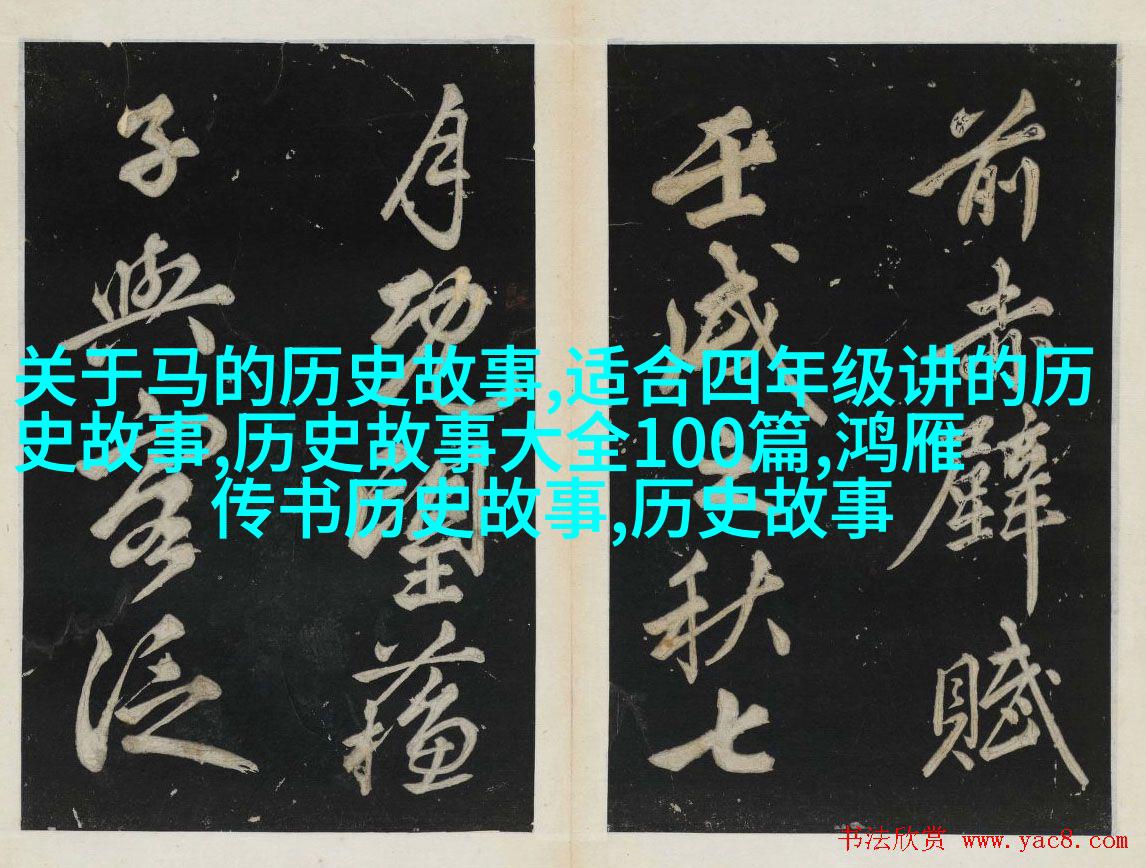 前赤壁賦
壬戌之秋七
月既望蘓
子與客泛
关于马的历史故事,适合四年级讲的历
史故事,历史故事大全100篇,鸿雁
传书历史故事,历史故事
书法欣赏 www.yac8.com